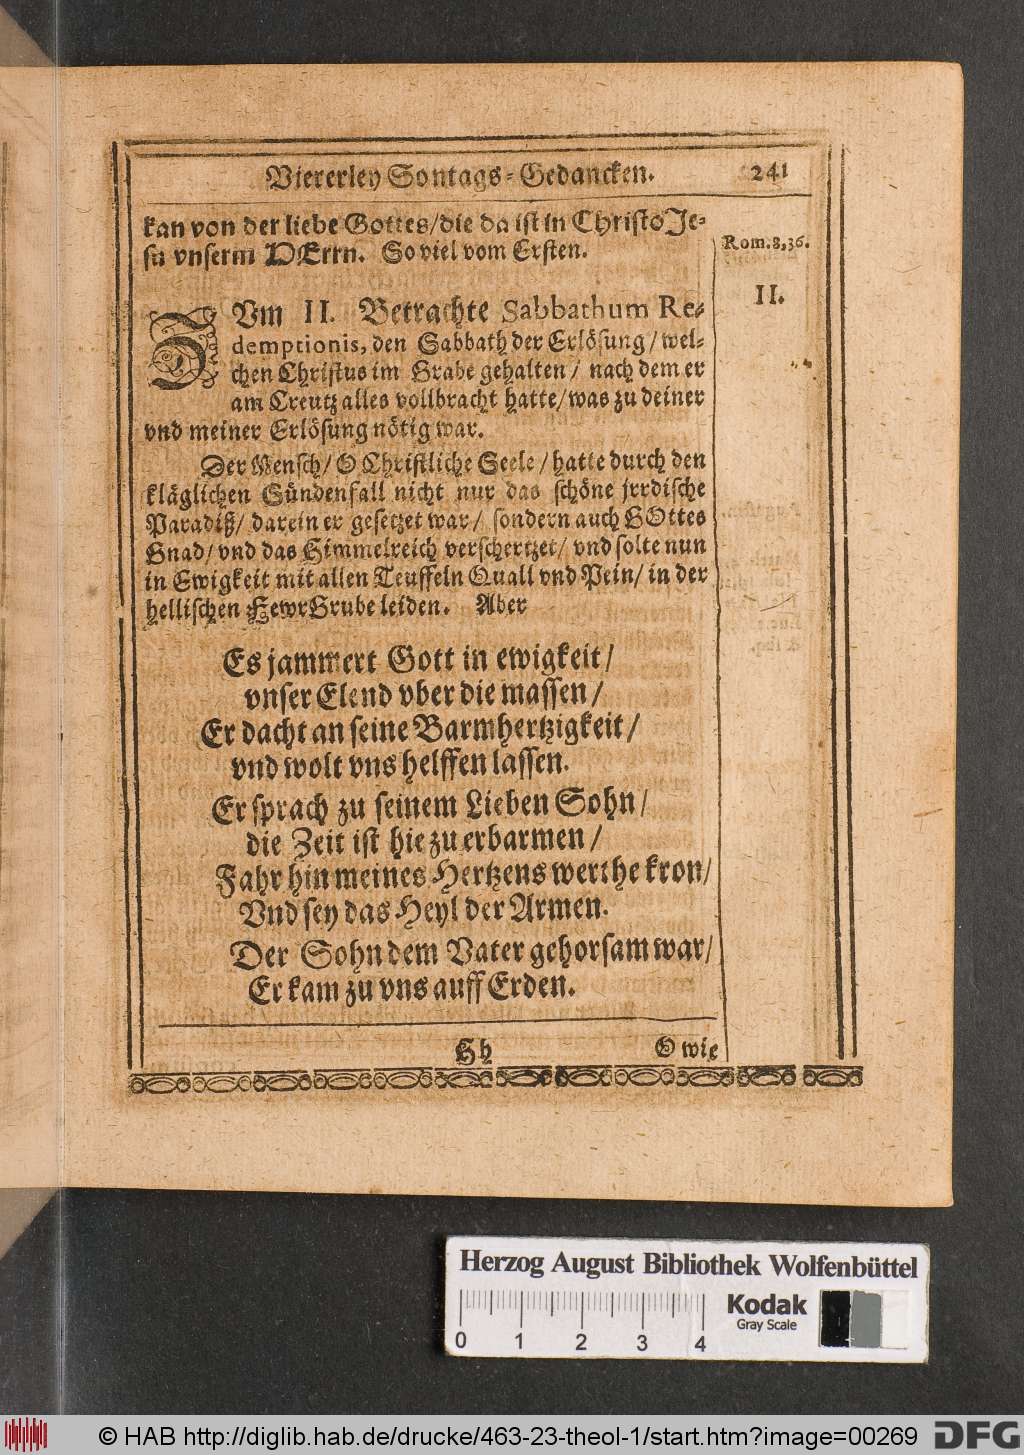 Viererley Sontags-Gedancken. 241
kan von der liebe Gottes/die da ist in Christo Je-
su vnserm HErrn. So viel vom Ersten.
Rom. 8,36.
II.
ZVm II. Betrachte Sabbathum Re-
demptionis, den Sabbath der Erlösung/wel-
chen Christus im Grabe gehalten/ nach dem er
am Creutz alles vollbracht hatte/was zu deiner
vnd meiner Erlösung nötig war.
Der Mensch/O Christliche Seele/hatte durch den
kläglichen Sündenfall nicht nur das schöne jrrdische
Paradiß/ darein er gesetzet war/ sondern auch GOttes
Gnad/vnd das Himmelreich verschertzet/ vnd solte nun
in Ewigkeit mit allen Teuffeln Quall vnd Pein/ in der
hellischen FewrGrube leiden. Aber
Es jammert Gott in ewigkeit/
vnser Elend vber die massen/
Er dacht an seine Barmhertzigkeit/
vnd wolt vns helffen lassen.
Er sprach zu seinem Lieben Sohn/
die Zeit ist hie zu erbarmen/
Fahr hin meines Hertzens werthe kron/
Vnd sey das Heyl der Armen.
Der Sohn dem Vater gehorsam war/
Er kam zu vns auff Erden.
Hh O wie
Herzog August Bibliothek Wolfenbüttel
0 1 2 3 4
Kodak
Gray Scale
© HAB http://diglib.hab.de/drucke/463-23-theol-1/start.htm?image=00269
DFG